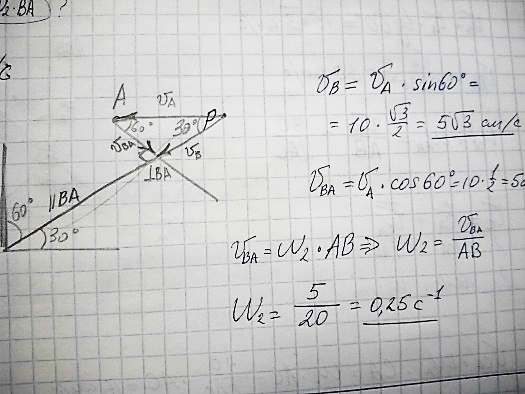 2·BA ?
A
v_A
60°
30°
P
v_BA
v_B
⊥BA
||BA
60°
30°
v_B = v_A · sin60° =
= 10 · √3/2 = 5√3 см/с
v_BA = v_A · cos60° = 10 · 1/2 = 5
v_BA = ω_2 · AB ⇒ ω_2 = v_BA/AB
ω_2 = 5/20 = 0,25 c⁻¹